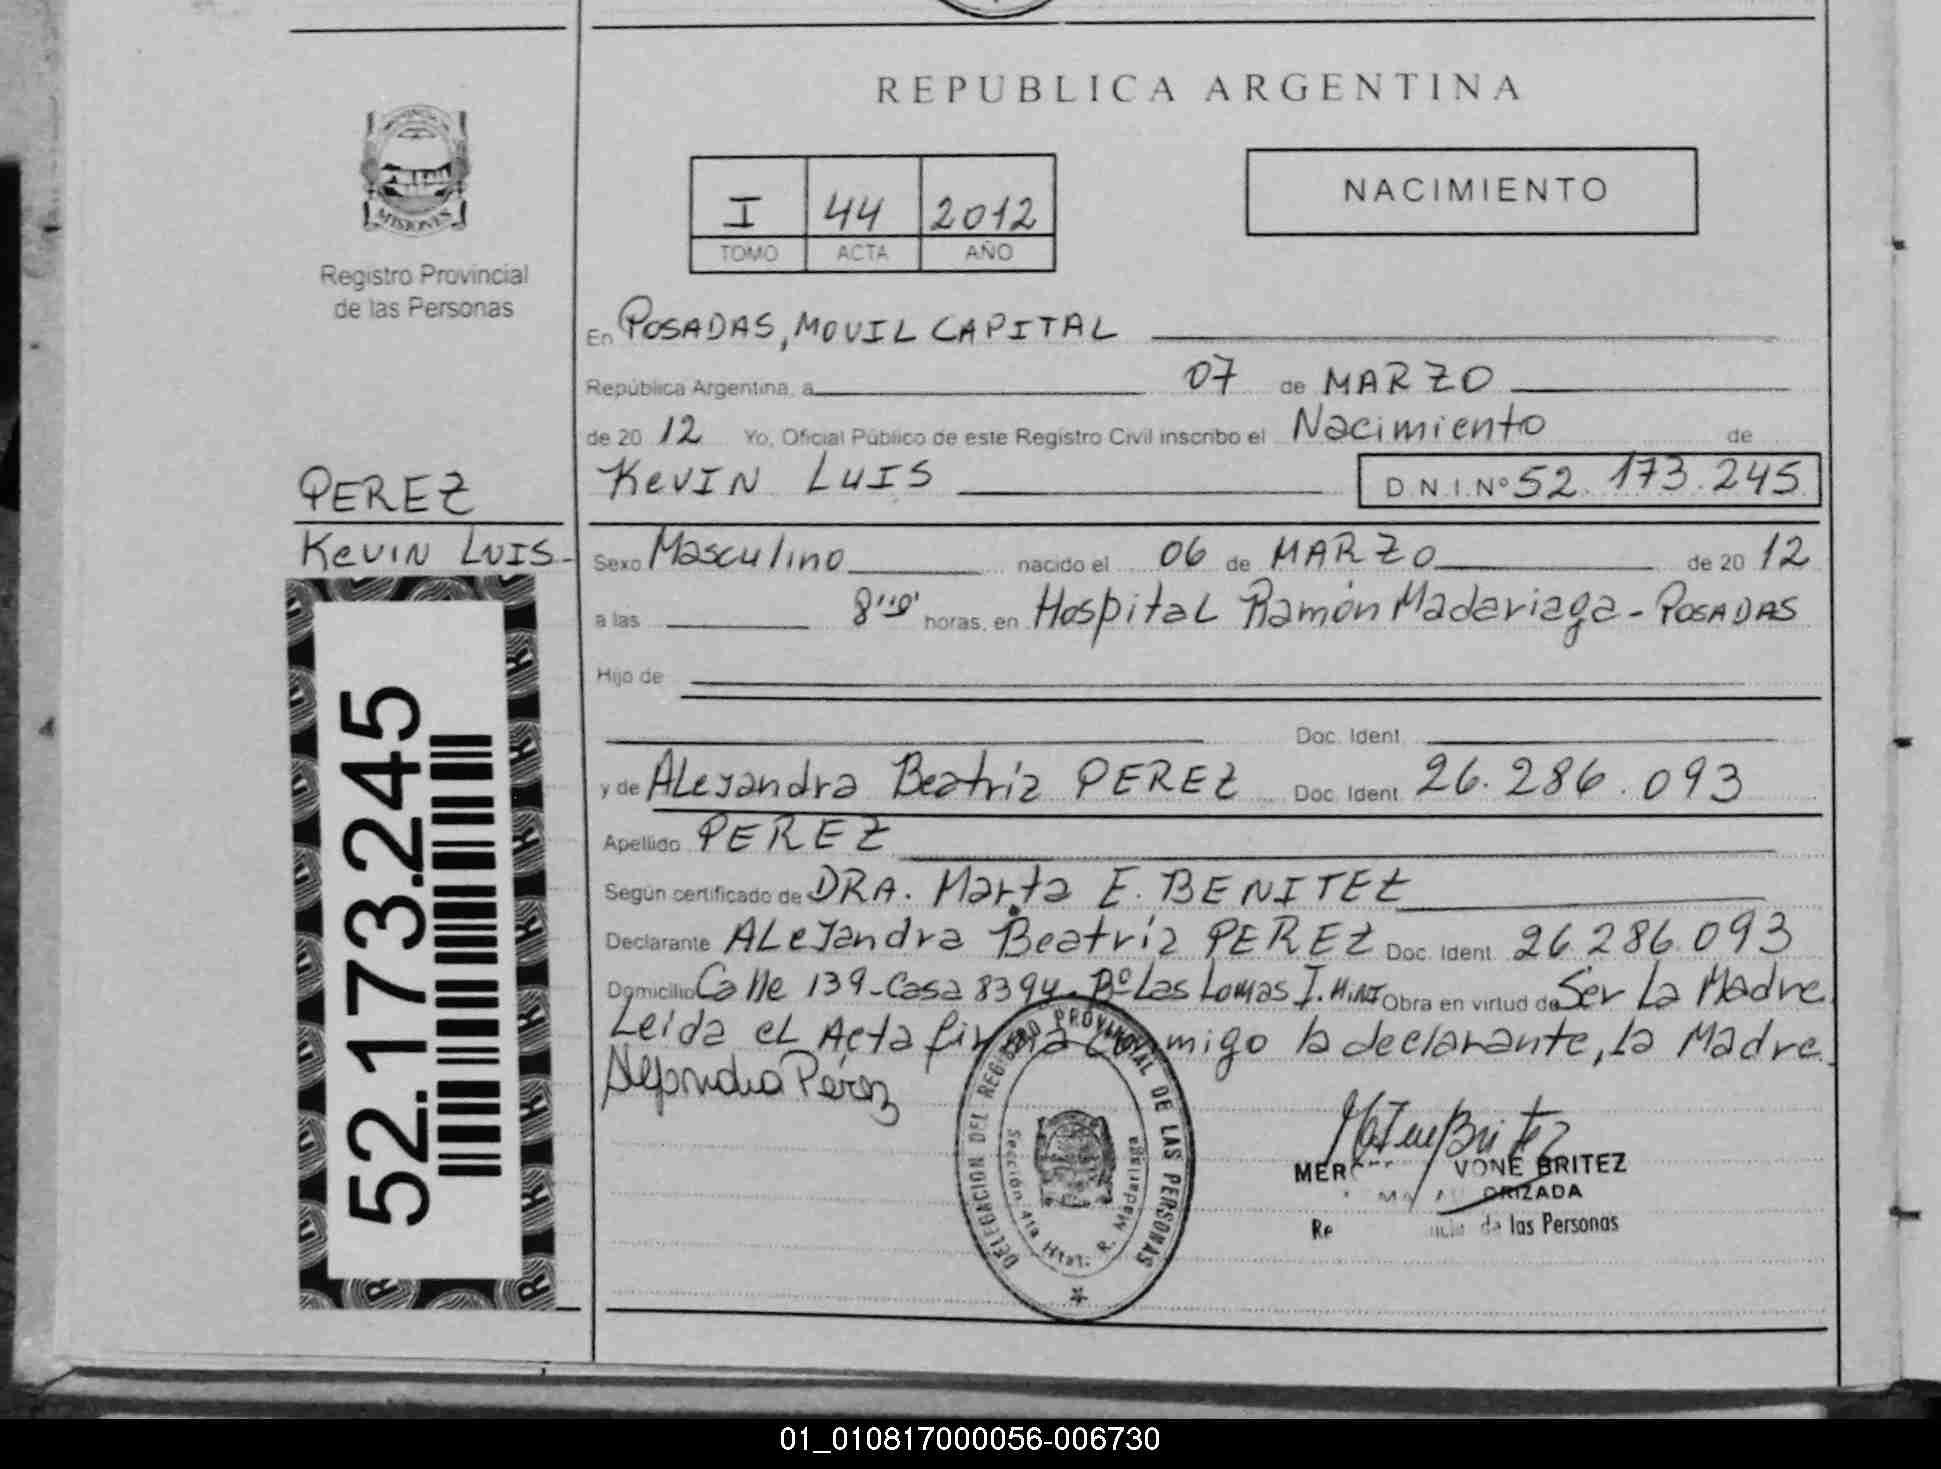 REPUBLICA ARGENTINA
MISIONES
Registro Provincial
de las Personas
I 44 2012
TOMO ACTA AÑO
NACIMIENTO
En POSADAS, MOVIL CAPITAL
República Argentina, a 07 de MARZO
de 20 12 Yo, Oficial Público de este Registro Civil inscribo el Nacimiento de
KeVIN LUIS D.N.I.Nº 52.173.245
PEREZ
KeVIN LUIS-
Sexo Masculino nacido el 06 de MARZO de 20 12
a las 8 horas, en Hospital Ramón Madariaga - POSADAS
Hijo de
Doc. Ident.
y de ALejandra Beatriz PEREZ Doc. Ident. 26.286.093
Apellido PEREZ
Según certificado de DRA. Marta E. BENITEZ
Declarante ALeJandra Beatriz PEREZ Doc. Ident. 26.286.093
Domicilio Calle 139-Casa 8394-Bº Las Lomas I. Obra en virtud de Ser La Madre.
Leída eL Acta firma conmigo la declarante, La Madre.
Alejandra Pérez
52.173.245
DELEGACION DEL REGISTRO PROVINCIAL DE LAS PERSONAS
Sección 4ta Htal. R. Madariaga
VONE BRITEZ
ORIZADA
de las Personas
01_010817000056-006730